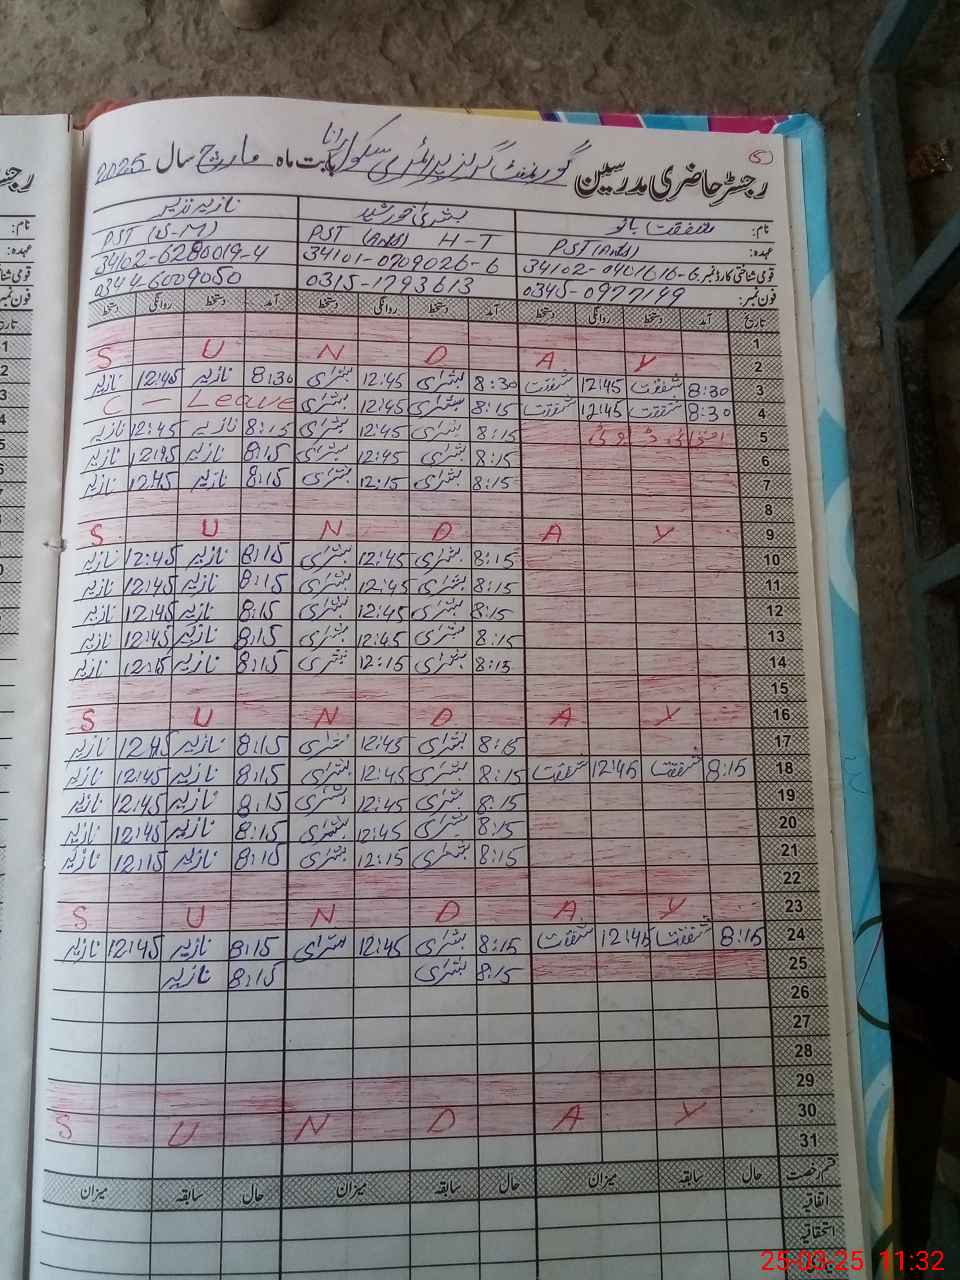 5
رجسٹر حاضری مدرسین گورنمنٹ گرلز پرائمری سکول رانا بابت ماہ مارچ سال 2025
نام: شفقت بانو بشریٰ خورشید نازیہ نذیر
عہدہ: PST (Arts) PST (Arts) H-T PST (S-M)
قومی شناختی کارڈ نمبر: 34102-0401616-6 34101-0909026-6 34102-6280019-4
فون نمبر: 0345-0977149 0315-1793613 0344-6009050
تاریخ آمد دستخط روانگی دستخط آمد دستخط روانگی دستخط آمد دستخط روانگی دستخط
1
2 S U N D A Y
3 8:30 شفقت 12:45 شفقت 8:30 بشریٰ 12:45 بشریٰ 8:30 نازیہ 12:45 نازیہ
4 8:30 شفقت 12:45 شفقت 8:15 بشریٰ 12:45 بشریٰ C - Leave
5 8:15 بشریٰ 12:45 بشریٰ 8:15 نازیہ 12:45 نازیہ
6 8:15 بشریٰ 12:45 بشریٰ 8:15 نازیہ 12:45 نازیہ
7 8:15 بشریٰ 12:15 بشریٰ 8:15 نازیہ 12:45 نازیہ
8
9 S U N D A Y
10 8:15 بشریٰ 12:45 بشریٰ 8:15 نازیہ 12:45 نازیہ
11 8:15 بشریٰ 12:45 بشریٰ 8:15 نازیہ 12:45 نازیہ
12 8:15 بشریٰ 12:45 بشریٰ 8:15 نازیہ 12:45 نازیہ
13 8:15 بشریٰ 12:45 بشریٰ 8:15 نازیہ 12:45 نازیہ
14 8:15 بشریٰ 12:15 بشریٰ 8:15 نازیہ 12:15 نازیہ
15
16 S U N D A Y
17 8:15 بشریٰ 12:45 بشریٰ 8:15 نازیہ 12:45 نازیہ
18 8:15 شفقت 12:45 شفقت 8:15 بشریٰ 12:45 بشریٰ 8:15 نازیہ 12:45 نازیہ
19 8:15 بشریٰ 12:45 بشریٰ 8:15 نازیہ 12:45 نازیہ
20 8:15 بشریٰ 12:45 بشریٰ 8:15 نازیہ 12:45 نازیہ
21 8:15 بشریٰ 12:15 بشریٰ 8:15 نازیہ 12:15 نازیہ
22
23 S U N D A Y
24 8:15 شفقت 12:45 شفقت 8:15 بشریٰ 12:45 بشریٰ 8:15 نازیہ 12:45 نازیہ
25 8:15 بشریٰ 8:15 نازیہ
26
27
28
29
30 S U N D A Y
31
قسم رخصت حال سابقہ میزان حال سابقہ میزان حال سابقہ میزان
اتفاقیہ
استحقاقیہ
25-03-25 11:32